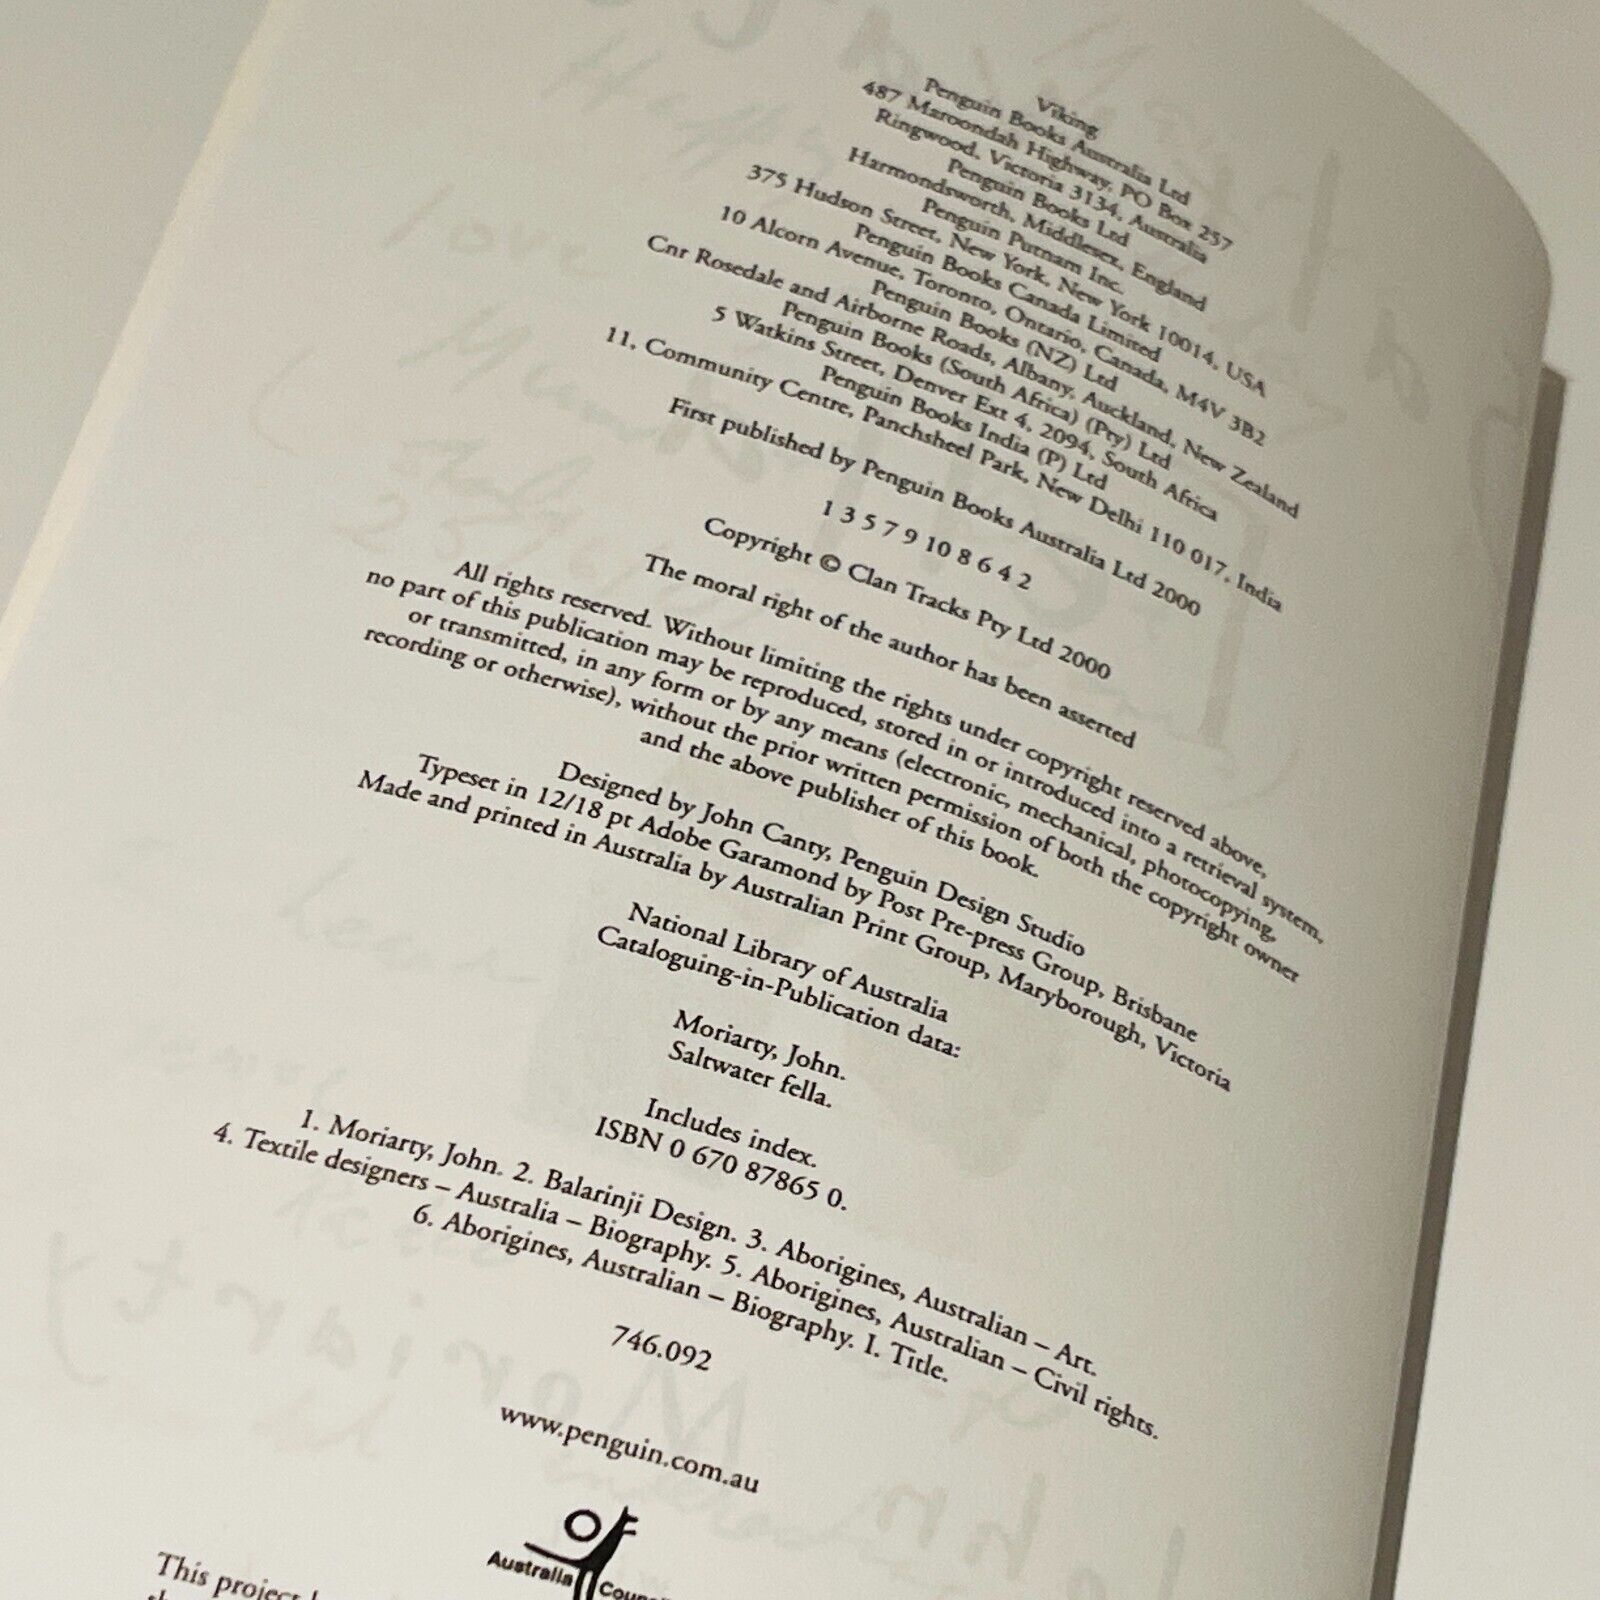 Viking
Penguin Books Australia Ltd
487 Maroondah Highway, PO Box 257
Ringwood, Victoria 3134, Australia
Penguin Books Ltd
Harmondsworth, Middlesex, England
Penguin Putnam Inc.
375 Hudson Street, New York, New York 10014, USA
Penguin Books Canada Limited
10 Alcorn Avenue, Toronto, Ontario, Canada, M4V 3B2
Penguin Books (NZ) Ltd
Cnr Rosedale and Airborne Roads, Albany, Auckland, New Zealand
Penguin Books (South Africa) (Pty) Ltd
5 Watkins Street, Denver Ext 4, 2094, South Africa
Penguin Books India (P) Ltd
11, Community Centre, Panchsheel Park, New Delhi 110 017, India
First published by Penguin Books Australia Ltd 2000
1 3 5 7 9 10 8 6 4 2
Copyright © Clan Tracks Pty Ltd 2000
The moral right of the author has been asserted
All rights reserved. Without limiting the rights under copyright reserved above,
no part of this publication may be reproduced, stored in or introduced into a retrieval system,
or transmitted, in any form or by any means (electronic, mechanical, photocopying,
recording or otherwise), without the prior written permission of both the copyright owner
and the above publisher of this book.
Designed by John Canty, Penguin Design Studio
Typeset in 12/18 pt Adobe Garamond by Post Pre-press Group, Brisbane
Made and printed in Australia by Australian Print Group, Maryborough, Victoria
National Library of Australia
Cataloguing-in-Publication data:
Moriarty, John.
Saltwater fella.
Includes index.
ISBN 0 670 87865 0.
1. Moriarty, John. 2. Balarinji Design. 3. Aborigines, Australian – Art.
4. Textile designers – Australia – Biography. 5. Aborigines, Australian – Civil rights.
6. Aborigines, Australian – Biography. I. Title.
746.092
www.penguin.com.au
Australia
This project